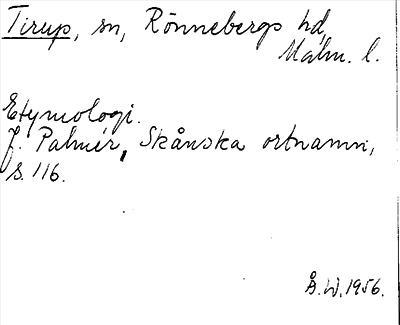 Tirup, sn, Rönnebergs hd,
Malm. l.
Etymologi.
J. Palmér, Skånska ortnamn,
s. 116.
Å.W. 1956.